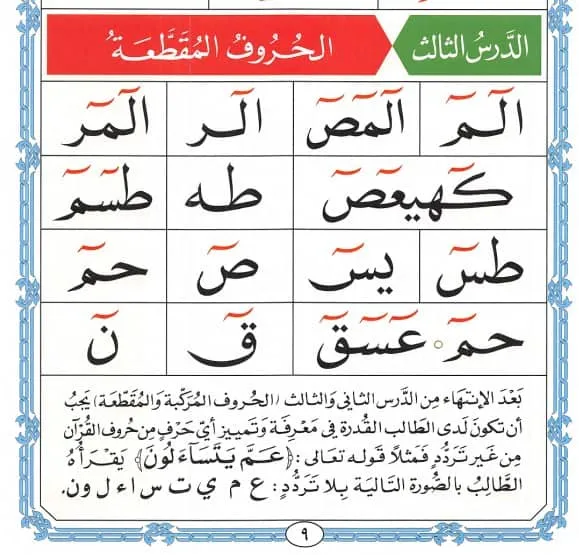 الدَّرسُ الثالث الحُرُوفُ المُقَطَّعَةُ
الٓـمٓ الٓمٓصٓ الٓـر الٓمٓر
كٓهيعٓصٓ طه طسٓمٓ
طسٓ يسٓ صٓ حمٓ
حمٓ عٓسٓقٓ قٓ نٓ
بَعْدَ الإنتِهَاء مِن الدَّرسِ الثاني وَالثالث (الحُروف المُرَكبة وَالمُقَطعَة) يَجبُ
أن تكونَ لدى الطالب القُدرة في مَعْرِفَة وَتمييز أيّ حَرْفٍ مِن حُروف القُرآن
مِن غَير تَرَدُّدٍ فَمَثلاً قوله تعالى : ﴿عَمَّ يَتَسَآءَلُونَ﴾ يَقْرَأهُ
الطَّالِبُ بالصُّورة التاليَة بِلا تَرَدُّدٍ: ع م ي ت س ا ء ل و ن.
٩